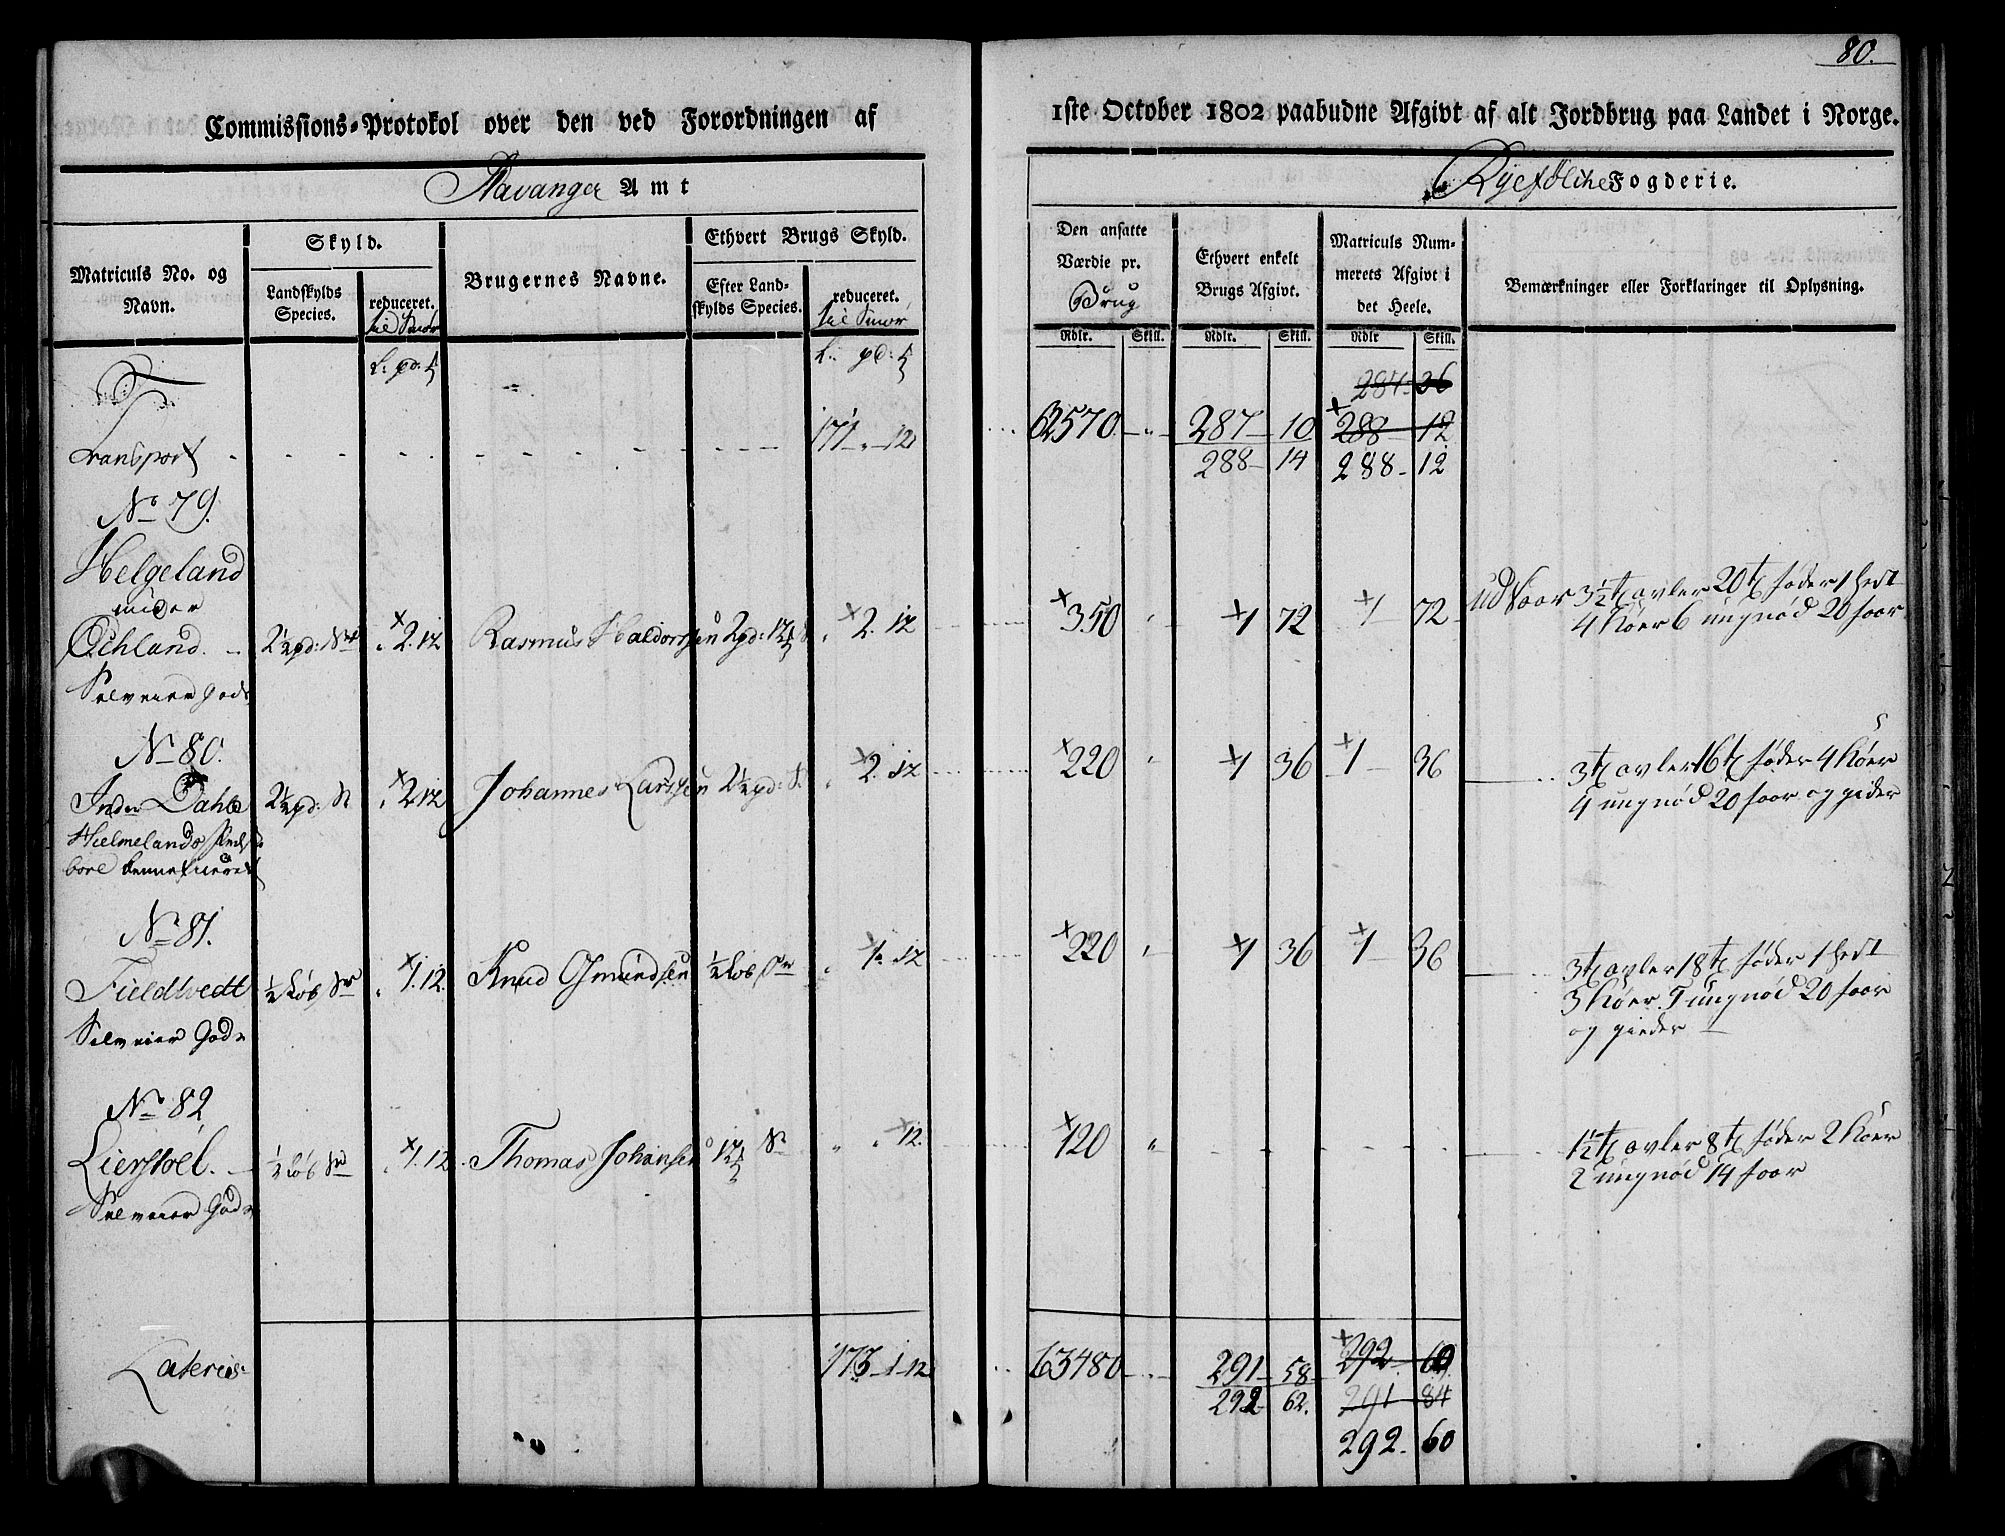 80.
Commissions-Protokol over den ved Forordningen af
1ste October 1802 paabudne Afgivt af alt Jordbrug paa Landet i Norge.
Stavanger Amt
Ryefylche Fogderie.
Matriculs No. og Navn.
Skyld.
Landskylds Species.
reduceret. til Smør
Brugernes Navne.
Ethvert Brugs Skyld.
Efter Landskylds Species.
reduceret. til Smør
Den ansatte Værdie pr. Brug
Ethvert enkelt Brugs Afgivt.
Matriculs Nummerets Afgivt i det Heele.
Bemærkninger eller Forklaringer til Oplysning.
Rdlr. Skill. Rdlr. Skill. Rdlr Skill.
L: pd:
L: pd:
284 - 26
Transport 171 - „ - 12 62570 - „ - 287 - 10 288 - 12
288 - 14 288 - 12
No 79.
Helgeland
under
Øchland. 2½ pd: Sm „ 2. 12 Rasmus Haldorssen 2 pd: 12 S „ 2. 12 350 „ 1 72 1 72 Udsaar 3½ t avler 20 t føder 1 hest
4 kiøer 6 ungnød 20 faar
Selveier Gods
No 80.
Indre Dahle 2½ pd: S „ 2 12 Johannes Larssen 2½ pd: S „ 2. 12 220 „ 1 36 1 36 3 t avler 16 t føder 4 kiøer
4 ungnød 20 faar og gieder
Hielmelands
No 81.
Fieldtvedt ½ Løb Sm „ 1. 12. Knud Osmundsen ½ Løb Sm „ 1. 12 220 „ 1 36 1 36 3 t avler 18 t føder 1 hest
3 kiøer 7 ungnød 20 faar
og gieder
Selveier Gods
No 82
Lierstøel. ½ Løb Sm „ 1. 12. Thomas Johansen 12 S „ „ 12 120 „ 1½ t avler 8 t føder 2 kiøer
2 ungnød 14 faar
Selveier Gods
Lateris 173 - 1 - 12 63480 - „ - 291 - 58 292 - 60
292 62. 291 - 84
292. 60